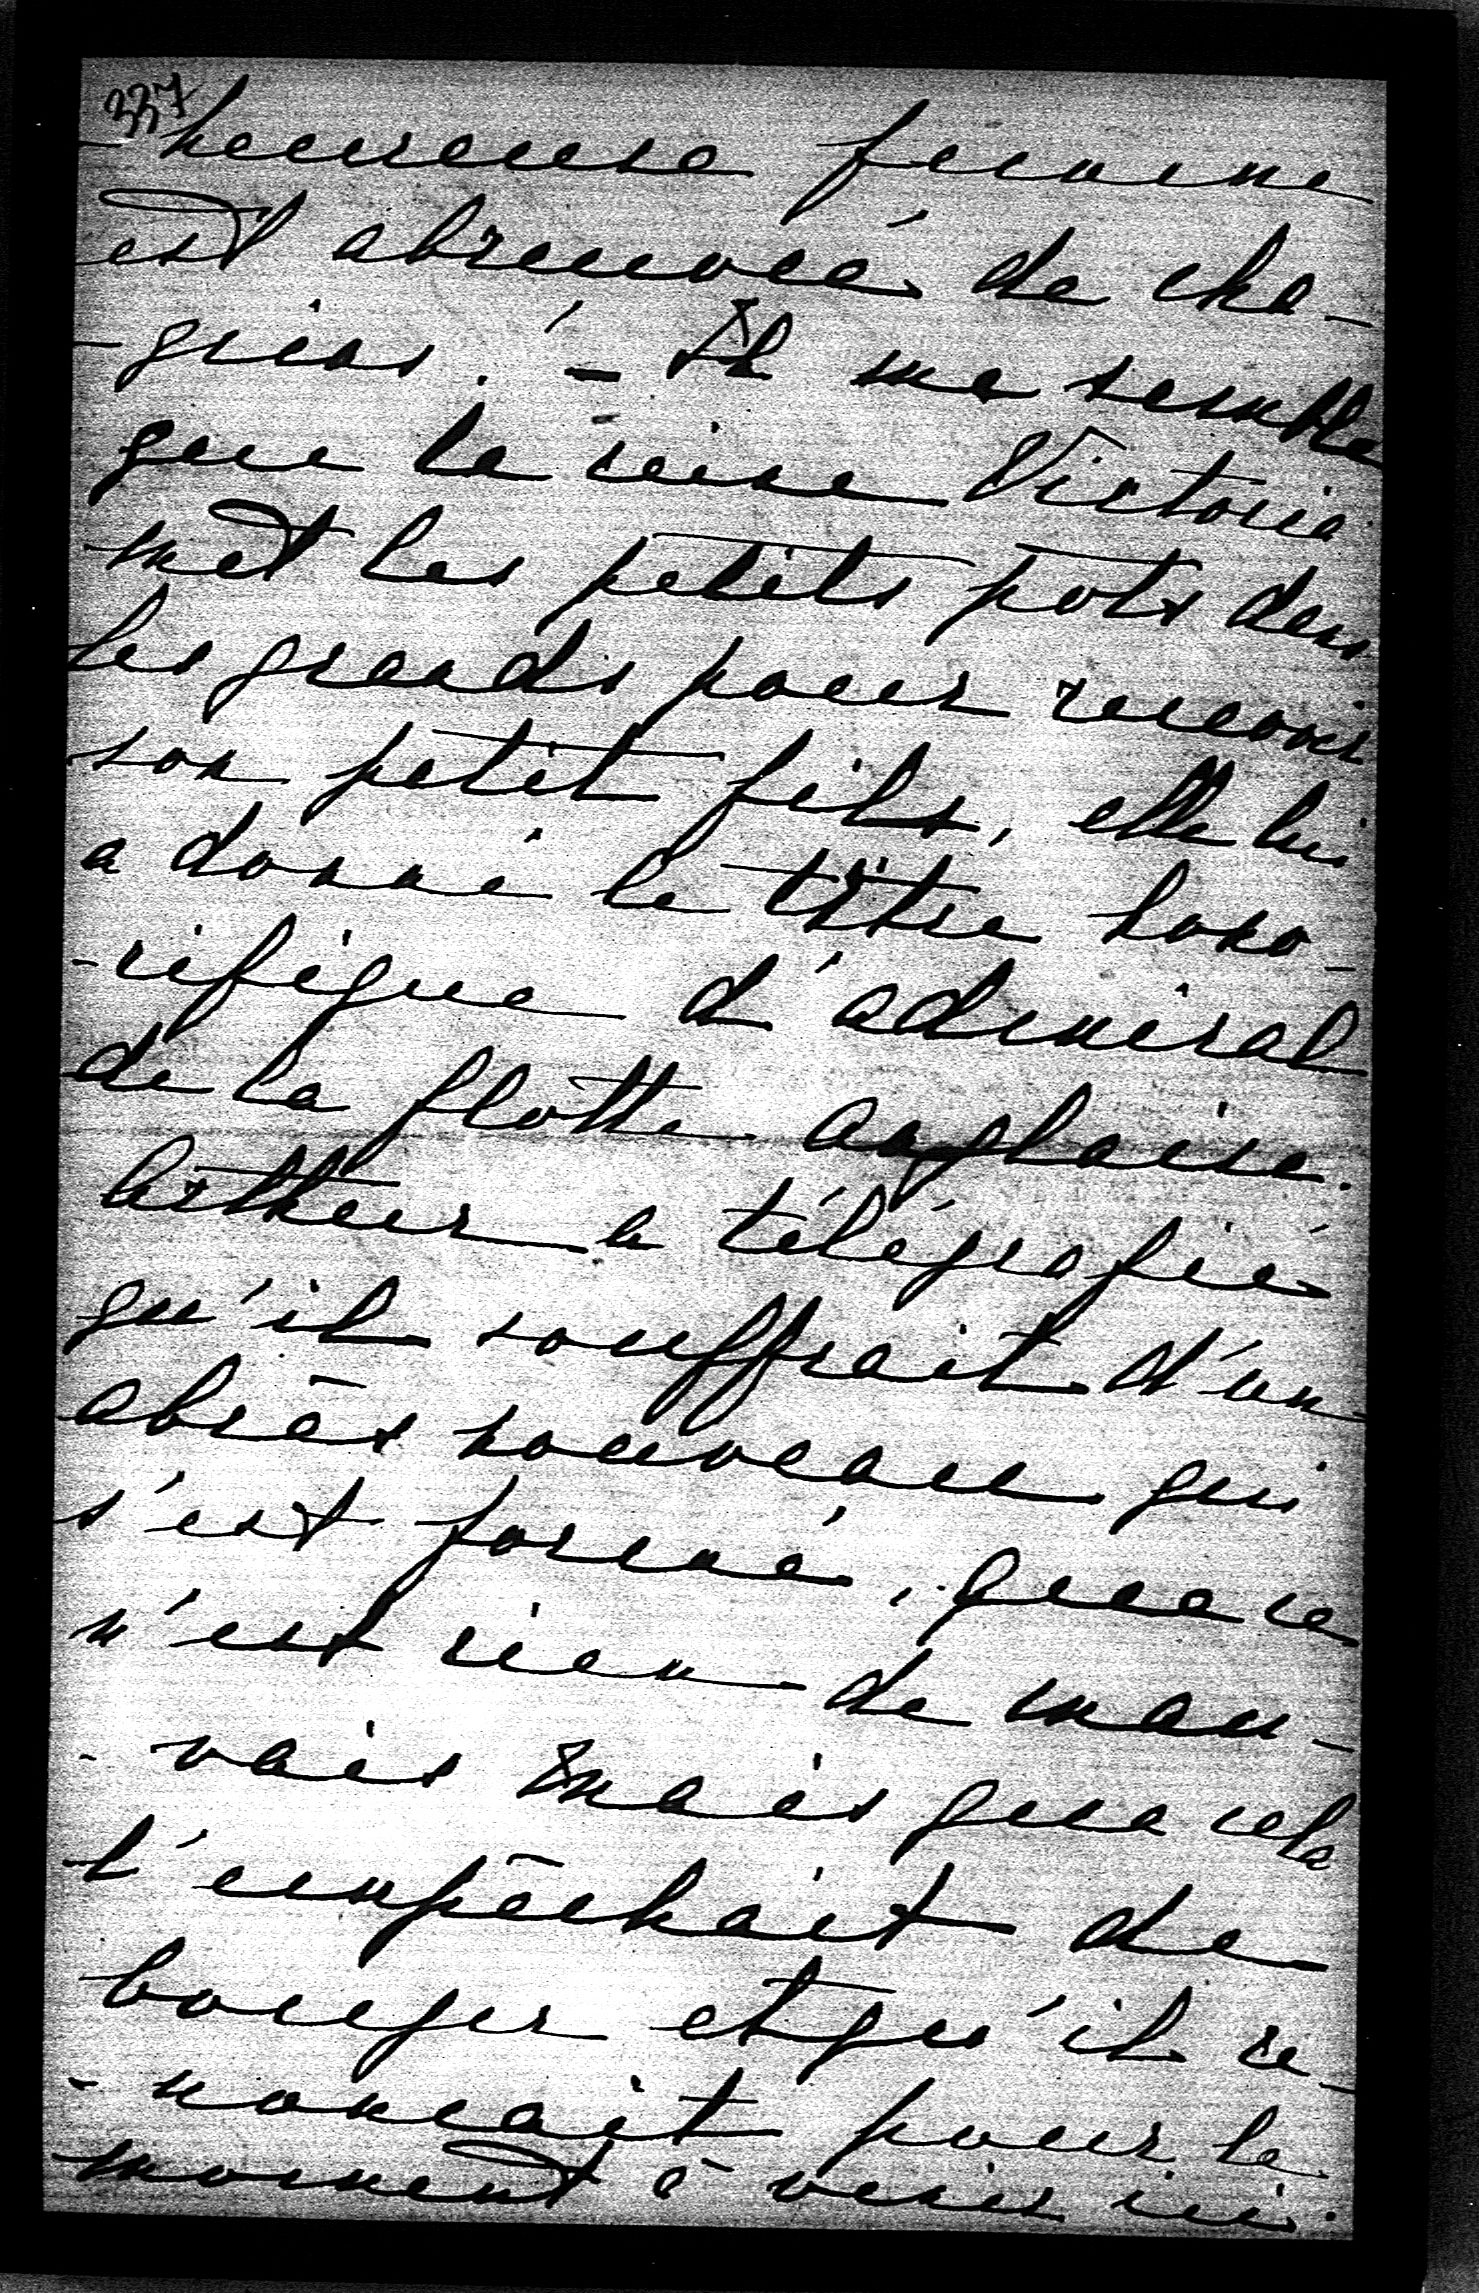 337
- heureuse femme
est abreuvée de cha-
- grins! - Il me semble
que la reine Victoria
met les petits pots dans
les grands pour recevoir
son petit fils, elle lui
a donné le titre hono-
- rifique d'admiral
de la flotte anglaise.
Arthur a télégrafié
qu'il souffrait d'un
abcès nouveau qui
s'est formé, que ce
n'est rien de mau-
- vais mais que cela
l'empêchait de
bouger et qu'il re-
- noncait pour le
moment à venir ici.